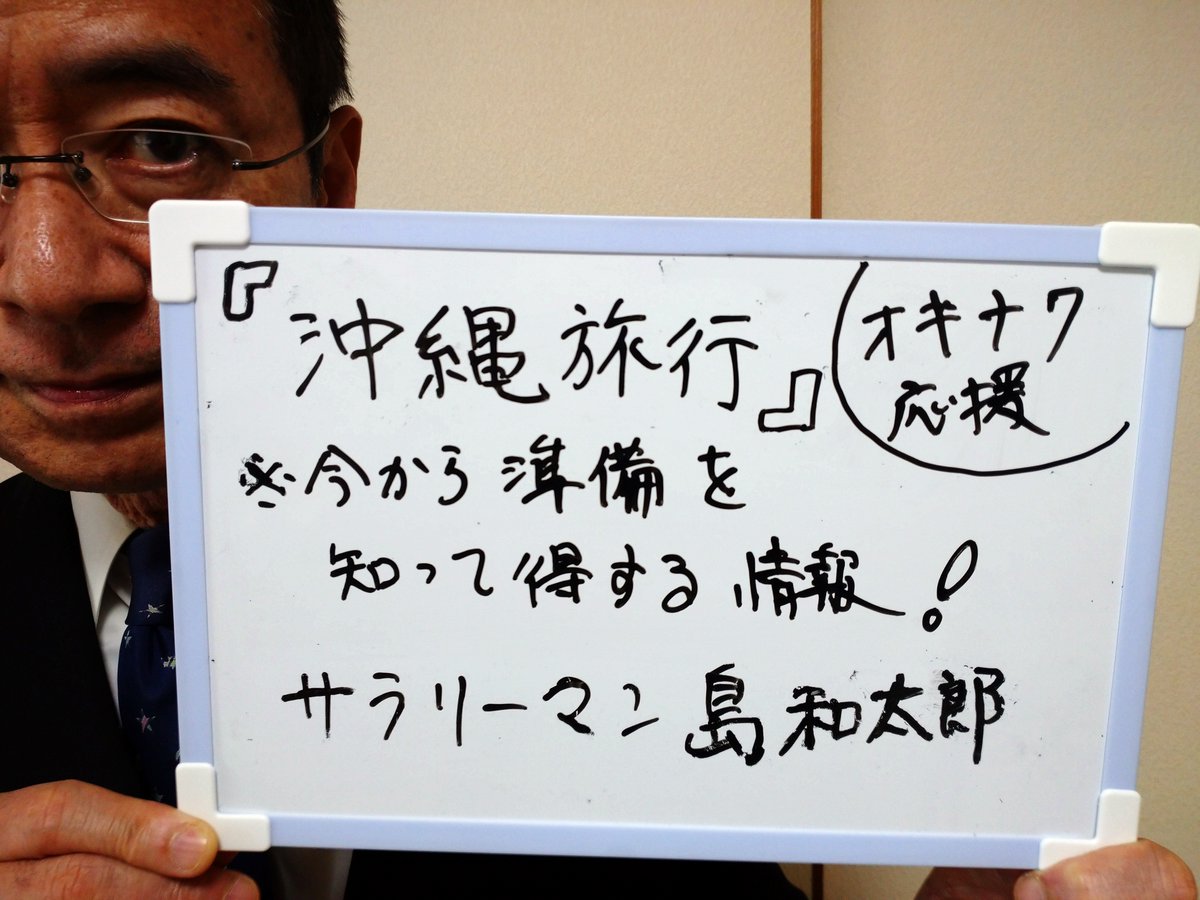 『沖縄旅行』
オキナワ
応援
※今から準備を
知って得する情報!
サラリーマン島和太郎